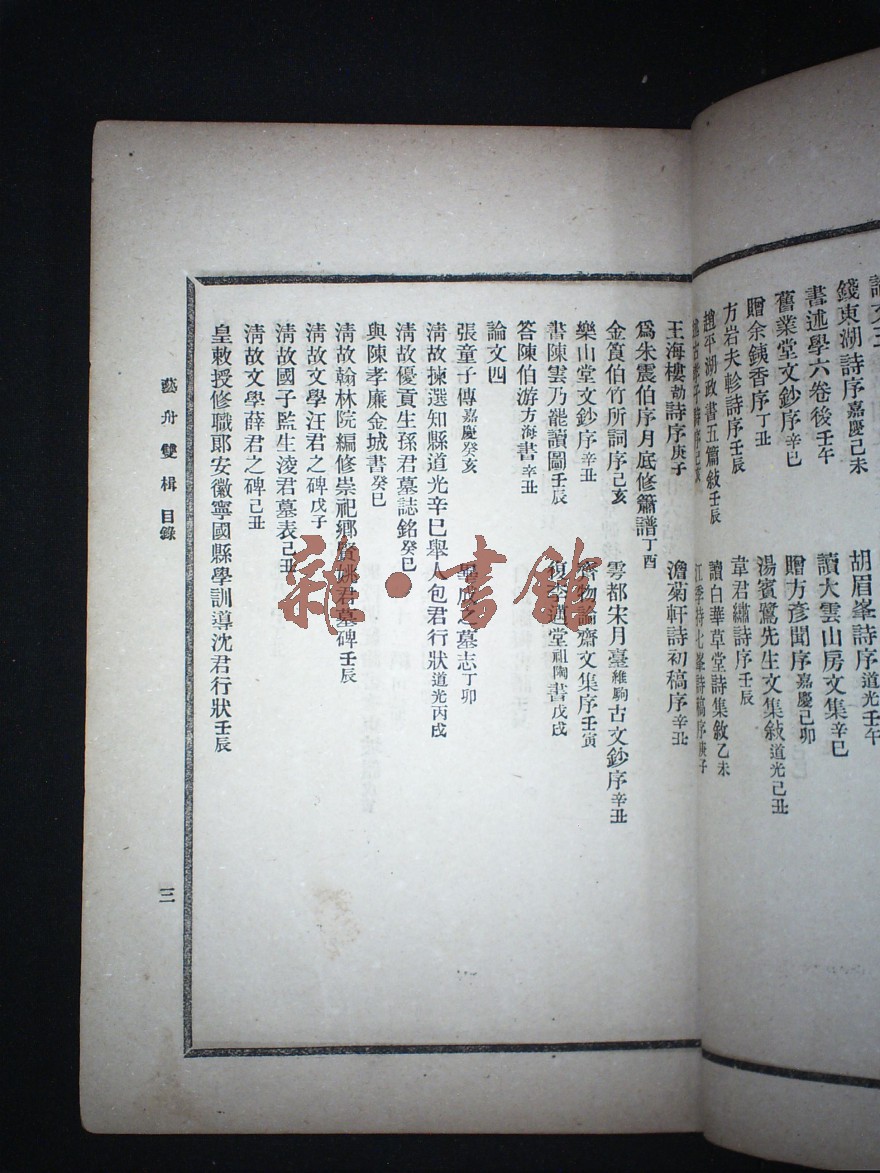 論文三
錢東湖詩序嘉慶己未
胡眉峯詩序道光壬午
書述學六卷後壬午
讀大雲山房文集辛巳
舊業堂文鈔序辛巳
贈方彥聞序嘉慶己卯
贈余銕香序丁丑
湯賓鷺先生文集敍道光己丑
方岩夫軫詩序壬辰
韋君繡詩序壬辰
趙平湖政書五篇敍壬辰
讀白華草堂詩集敘乙未
江季持七峯詩稿序庚子
王海樓劼詩序庚子
澹菊軒詩初稿序辛丑
爲朱震伯序月底修簫譜丁酉
金筤伯竹所詞序己亥
雩都宋月臺維駒古文鈔序辛丑
樂山堂文鈔序辛丑
齊物論齋文集序壬寅
書陳雲乃罷讀圖壬辰
復李邁堂祖陶書戊戌
答陳伯游方海書辛丑
論文四
張童子傳嘉慶癸亥
畢成之墓志丁卯
清故揀選知縣道光辛巳舉人包君行狀道光丙戌
清故優貢生孫君墓誌銘癸巳
與陳孝廉金城書癸巳
清故翰林院編修崇祀鄉賢姚君墓碑壬辰
清故文學汪君之碑戊子
清故國子監生淩君墓表己丑
清故文學薛君之碑己丑
皇敕授修職郎安徽寧國縣學訓導沈君行狀壬辰
藝舟雙楫 目錄
三
雜·書館